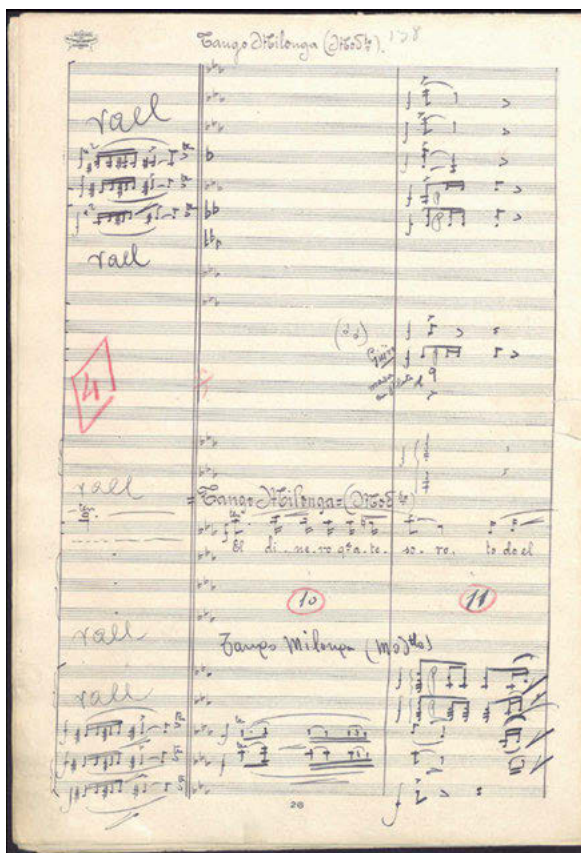 Tango Milonga (Modto). 138
rall
rall
Güiro
4
rall
= Tango Milonga = (Modto)
El di - ne - ro q'a - te - so - ro. to do el
10 11
rall
Tango Milonga (Modto)
rall
28